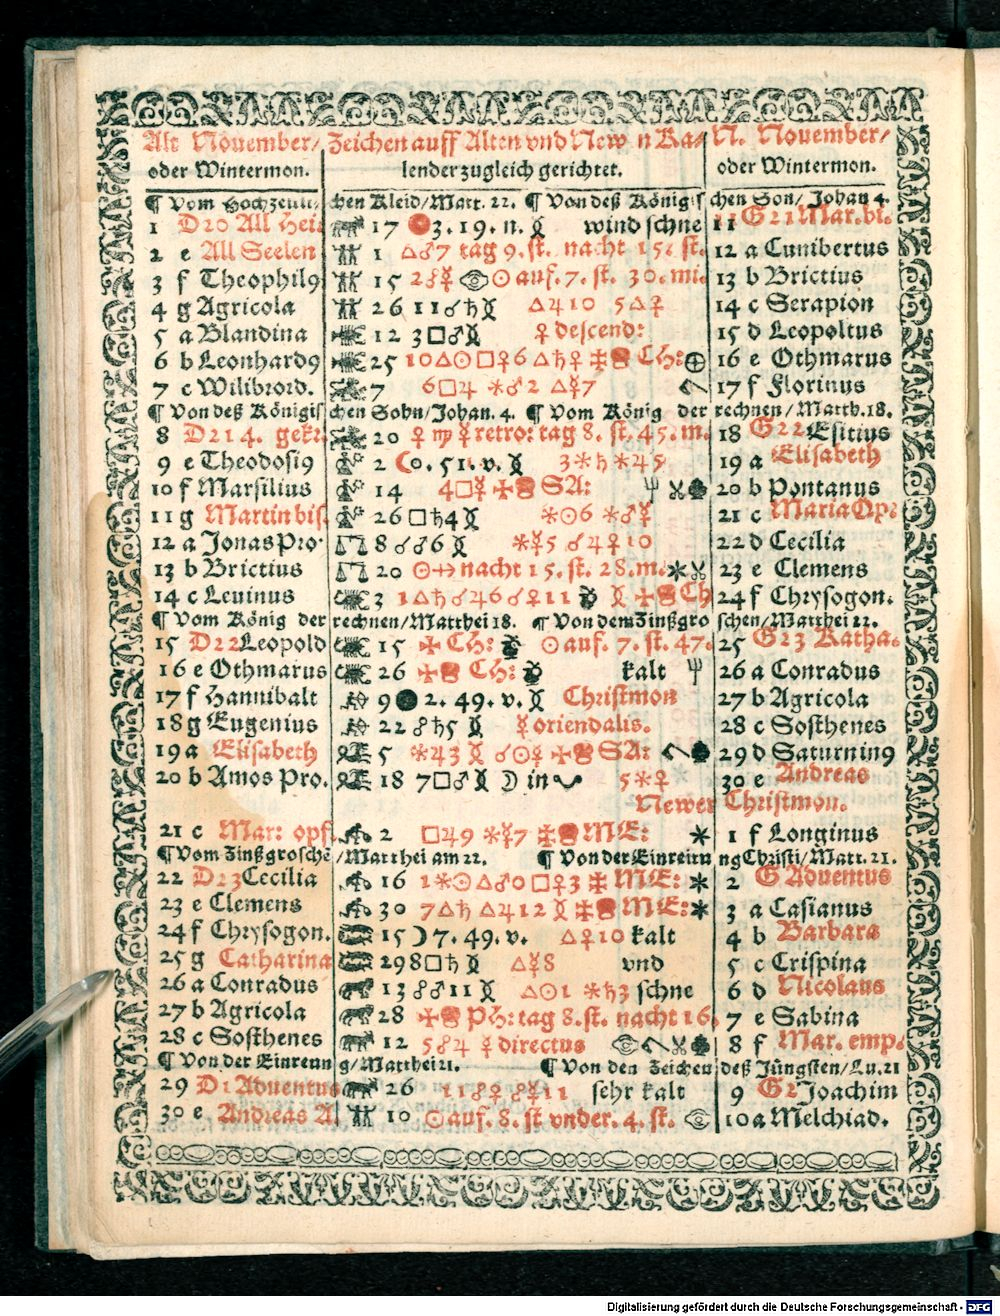 Alt November/ Zeichen auff Alten vnd New n Ka/ N. November/
oder Wintermon. lender zugleich gerichtet. oder Wintermon.
¶ Vom Hochzeitli/ chen Kleid/Matt. 22. ¶ Von deß Königis chen Son/ Johan 4.
1 D20 All Hei. 17 3. 19. n. wind schne 11 G21 Mar. bi.
2 e All Seelen 1 △♂7 tag 9. st. nacht 15. st. 12 a Cunibertus
3 f Theophil9 15 2☍☿ ☉auf. 7. st. 30. mi. 13 b Brictius
4 g Agricola 26 11☌♄ △♃10 5△♀ 14 c Serapion
5 a Blandina 12 3□♂ ♀descend: 15 d Leopoltus
6 b Leonhard9 25 10△☉□♀6 △♄♀ ✠ Ch: ⊕ 16 e Othmarus
7 c Wilibrord. 7 6□♃ ✶♂2 △☿7 17 f Florinus
¶ Von deß Königis chen Sohn/Johan. 4. ¶ Vom König der rechnen/Matth. 18.
8 D21 4. gekr. 20 ♀♍☿retro: tag 8. st. 45. m. 18 G22 Esitius
9 e Theodosi9 2 ☾0. 51. v. 3✶♄✶♃5 19 a Elisabeth
10 f Marsilius 14 4□☿ ✠ SA: 20 b Pontanus
11 g Martin bis. 26 □♄4 ✶☉6 ✶♂☿ 21 c Maria Op:
12 a Jonas Pro. 8 ☌♂6 ✶☿5 ☌♃♀10 22 d Cecilia
13 b Brictius 20 ☉♐nacht 15. st. 28. m. 23 e Clemens
14 c Levinus 3 1△♄☌♃6☌♀11 ✠ Ch 24 f Chrysogon.
¶ Vom König der rechnen/Matthei 18. ¶ Von dem Zinßgro schen/Matthei 22.
15 D22 Leopold 15 ✠ CH: ☉auf. 7. st. 47. 25 G23 Katha.
16 e Othmarus 26 ✠ CH: kalt 26 a Conradus
17 f Hannibalt 9 ● 2. 49. v. Christmon 27 b Agricola
18 g Eugenius 22 ☍♄5 ☿oriendalis. 28 c Sosthenes
19 a Elisabeth 5 ✶♃3 ☌☉☿ ✠ SA: 29 d Saturnin9
20 b Amos Pro. 18 7□♂ ☽ in 5✶♀ 30 e Andreas
Newer Christmon.
21 c Mar: opf. 2 □♃9 ✶☿7 ✠ ME: 1 f Longinus
¶ Vom Zinßgrosche /Matthei am 22. ¶ Von der Einreitu ng Christi/Matt. 21.
22 D23 Cecilia 16 1✶☉△♂0□♀3 ✠ ME: 2 G Adventus
23 e Clemens 30 7△♄ △♃12 ✠ ME: 3 a Casianus
24 f Chrysogon. 15 ☽7. 49. v. △♀10 kalt 4 b Barbara
25 g Catharina 29 8□♄ △☿8 vnd 5 c Crispina
26 a Conradus 13 ☍♂11 △☉1 ✶♄3 schne 6 d Nicolaus
27 b Agricola 28 ✠ Ph: tag 8. st. nacht 16. 7 e Sabina
28 c Sosthenes 12 5☍♃ ♀directus 8 f Mar. emp.
¶ Von der Einreun g/Matthei 21. ¶ Von den Zeichen deß Jüngsten/Lu. 21
29 D1 Adventus 26 11☍♀ ☍☿11 sehr kalt 9 G2 Joachim
30 e Andreas A. 10 ☉auf. 8. st vnder. 4. st. 10 a Melchiad.
Digitalisierung gefördert durch die Deutsche Forschungsgemeinschaft - DFG